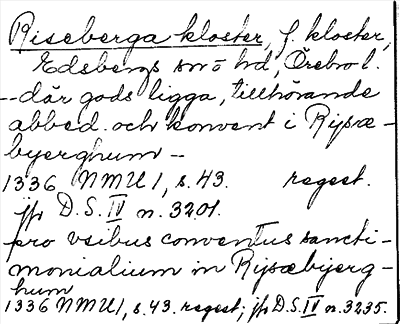 Riseberga kloster, f. kloster,
Edsbergs snö hd, Örebro l.
--där gods ligga, tillhörande
abbed. och konvent i Rijsæ-
byerghum -
1336 NMU 1, s. 43. regest.
jfr D.S. IV n. 3201.
pro vsibus conventus sancti-
monialium in Rijsæbijerg-
hum
1336 NMU 1, s. 43. regest; jfr D.S. IV n. 3235.